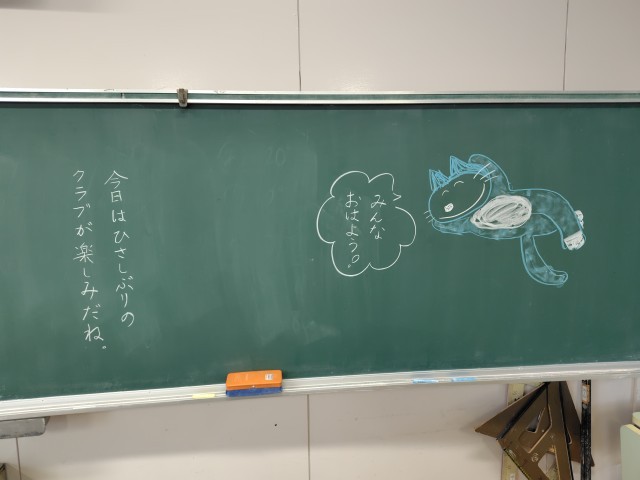 みんな
おはよう!
今日はひさしぶりの
クラブが楽しみだね。